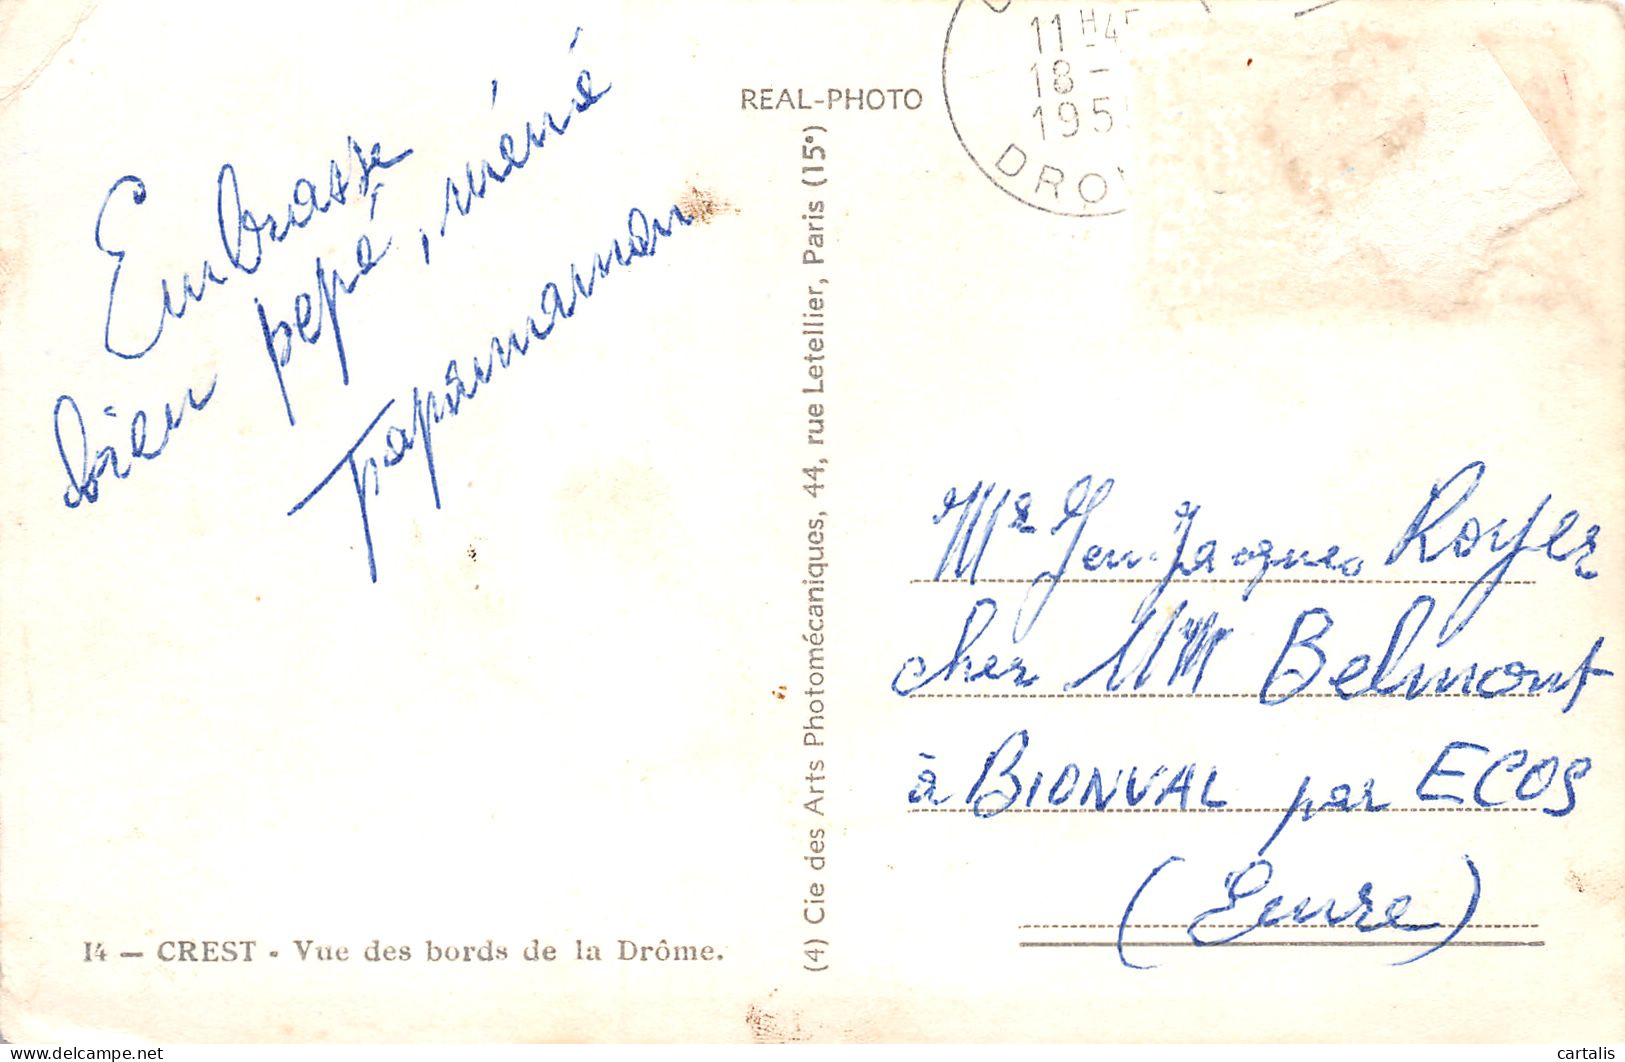 Embrasse
bien pepé, méné
papamaman
REAL-PHOTO
11 H 45
18 -
195
DRO
(4) Cie des Arts Photomécaniques, 44, rue Letellier, Paris (15e)
Mr Jen-Jacques Royer
cher MM Belmont
à BIONVAL par ECOS
(Eure)
14 — CREST - Vue des bords de la Drôme.
cartalis